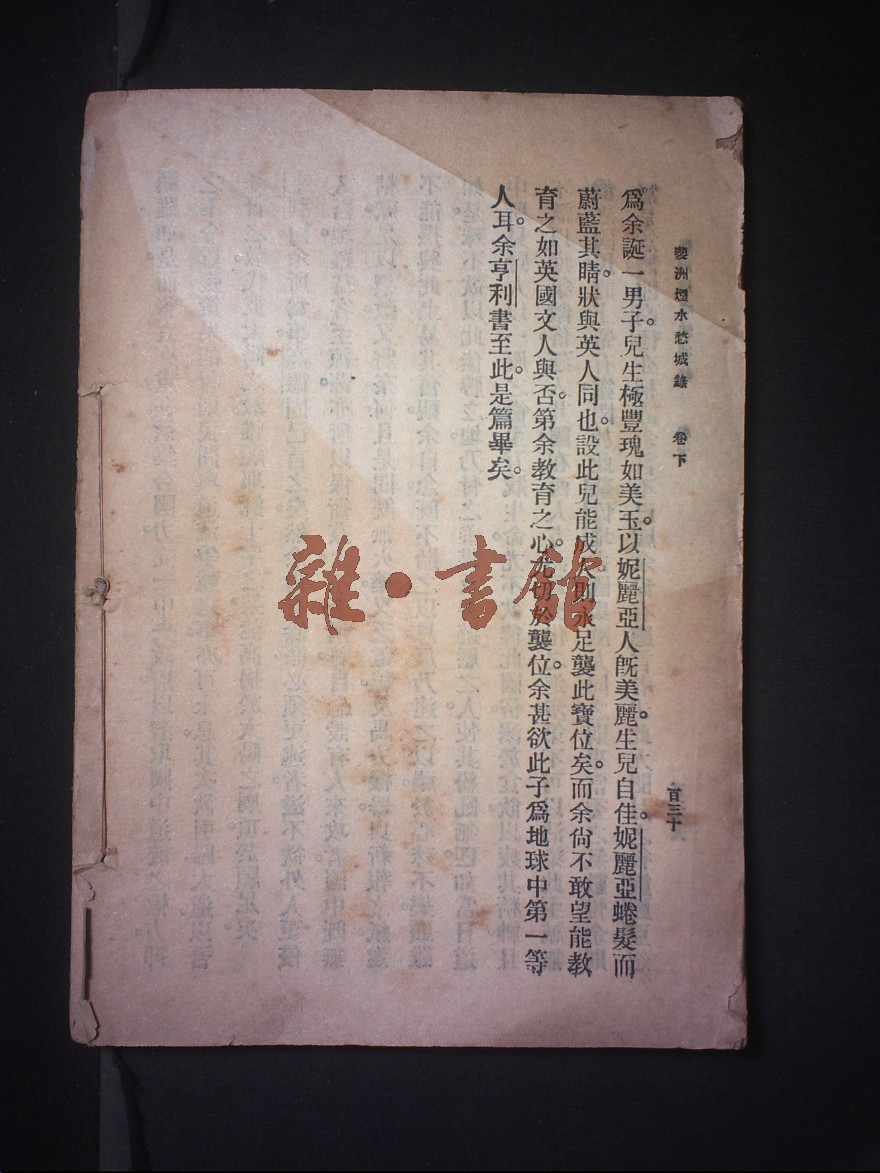 斐洲煙水愁城錄 卷下 百三十
爲余誕一男子。兒生極豐瑰如美玉。以妮麗亞人旣美麗。生兒自佳。妮麗亞蜷髮而
蔚藍其睛。狀與英人同也。設此兒能成人。則永足襲此寶位矣。而余尙不敢望能教
育之如英國文人與否。第余教育之心。尤切於襲位。余甚欲此子爲地球中第一等
人耳。余亨利書至此。是篇畢矣。
雜·書館